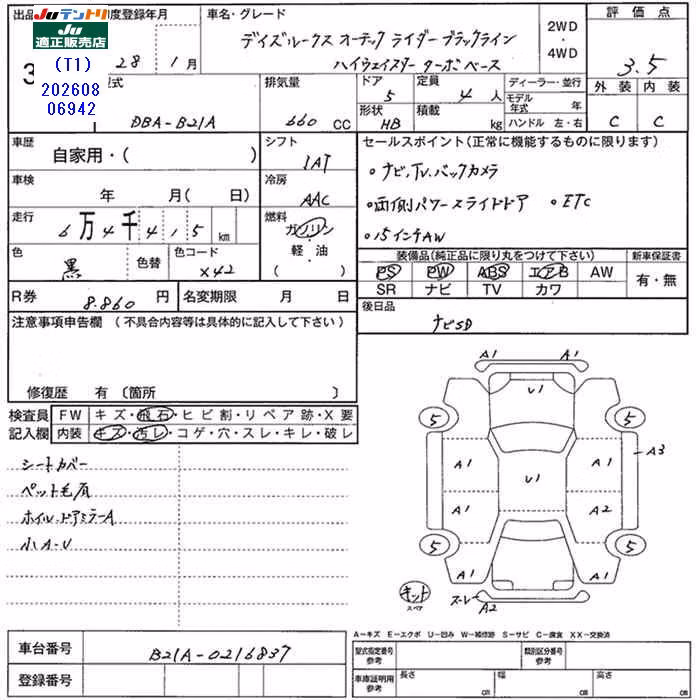 出品
Juテントリ
Ju適正販売店
(T1)
202608
06942
3
度登録年月
28年 1月
車名・グレード
デイズルークス オーテック ライダー ブラックライン
ハイウェイスター ターボ ベース
2WD
・
4WD
評価点
3.5
外装 内装
C C
型式
DBA-B21A
排気量
660 CC
ドア
5
形状
HB
定員
4 人
積載
kg
ディーラー・並行
モデル年式 年
ハンドル 左・右
車歴
自家用・( )
シフト
IAT
車検
年 月( 日)
冷房
AAC
走行
6万4千415 km
燃料
ガソリン
軽・油
( )
色
黒
色替
色コード
X42
R券
8.860 円
名変期限 月 日
セールスポイント(正常に機能するものに限ります)
・ナビ,TV.バックカメラ
・両側パワースライドドア ・ETC
・15インチAW
装備品(純正品に限り丸をつけて下さい)
PS PW ABS エアB AW
SR ナビ TV カワ
新車保証書
有・無
後日品
ナビSD
注意事項申告欄(不具合内容等は具体的に記入して下さい)
修復歴 有〔箇所 〕
検査員
記入欄
FW キズ・飛石・ヒビ割・リペア跡・X要
内装 キズ・汚レ・コゲ・穴・スレ・キレ・破レ
シートカバー
ペット毛有
ホイル.ドアミラーA
小A-U
A1 A1
U1
5 5
A3
A1 A1
U1
A1 A2
5 5
A1 A1
キット
スペア
スーレー
A2
A-キズ E-エクボ U-凹み W-補修跡 S-サビ C-腐食 XX-交換済
車台番号
B21A-0216837
登録番号
型式指定番号
参考
類別区分番号
参考
車庫証明用
参考
長さ cm
幅 cm
高さ cm